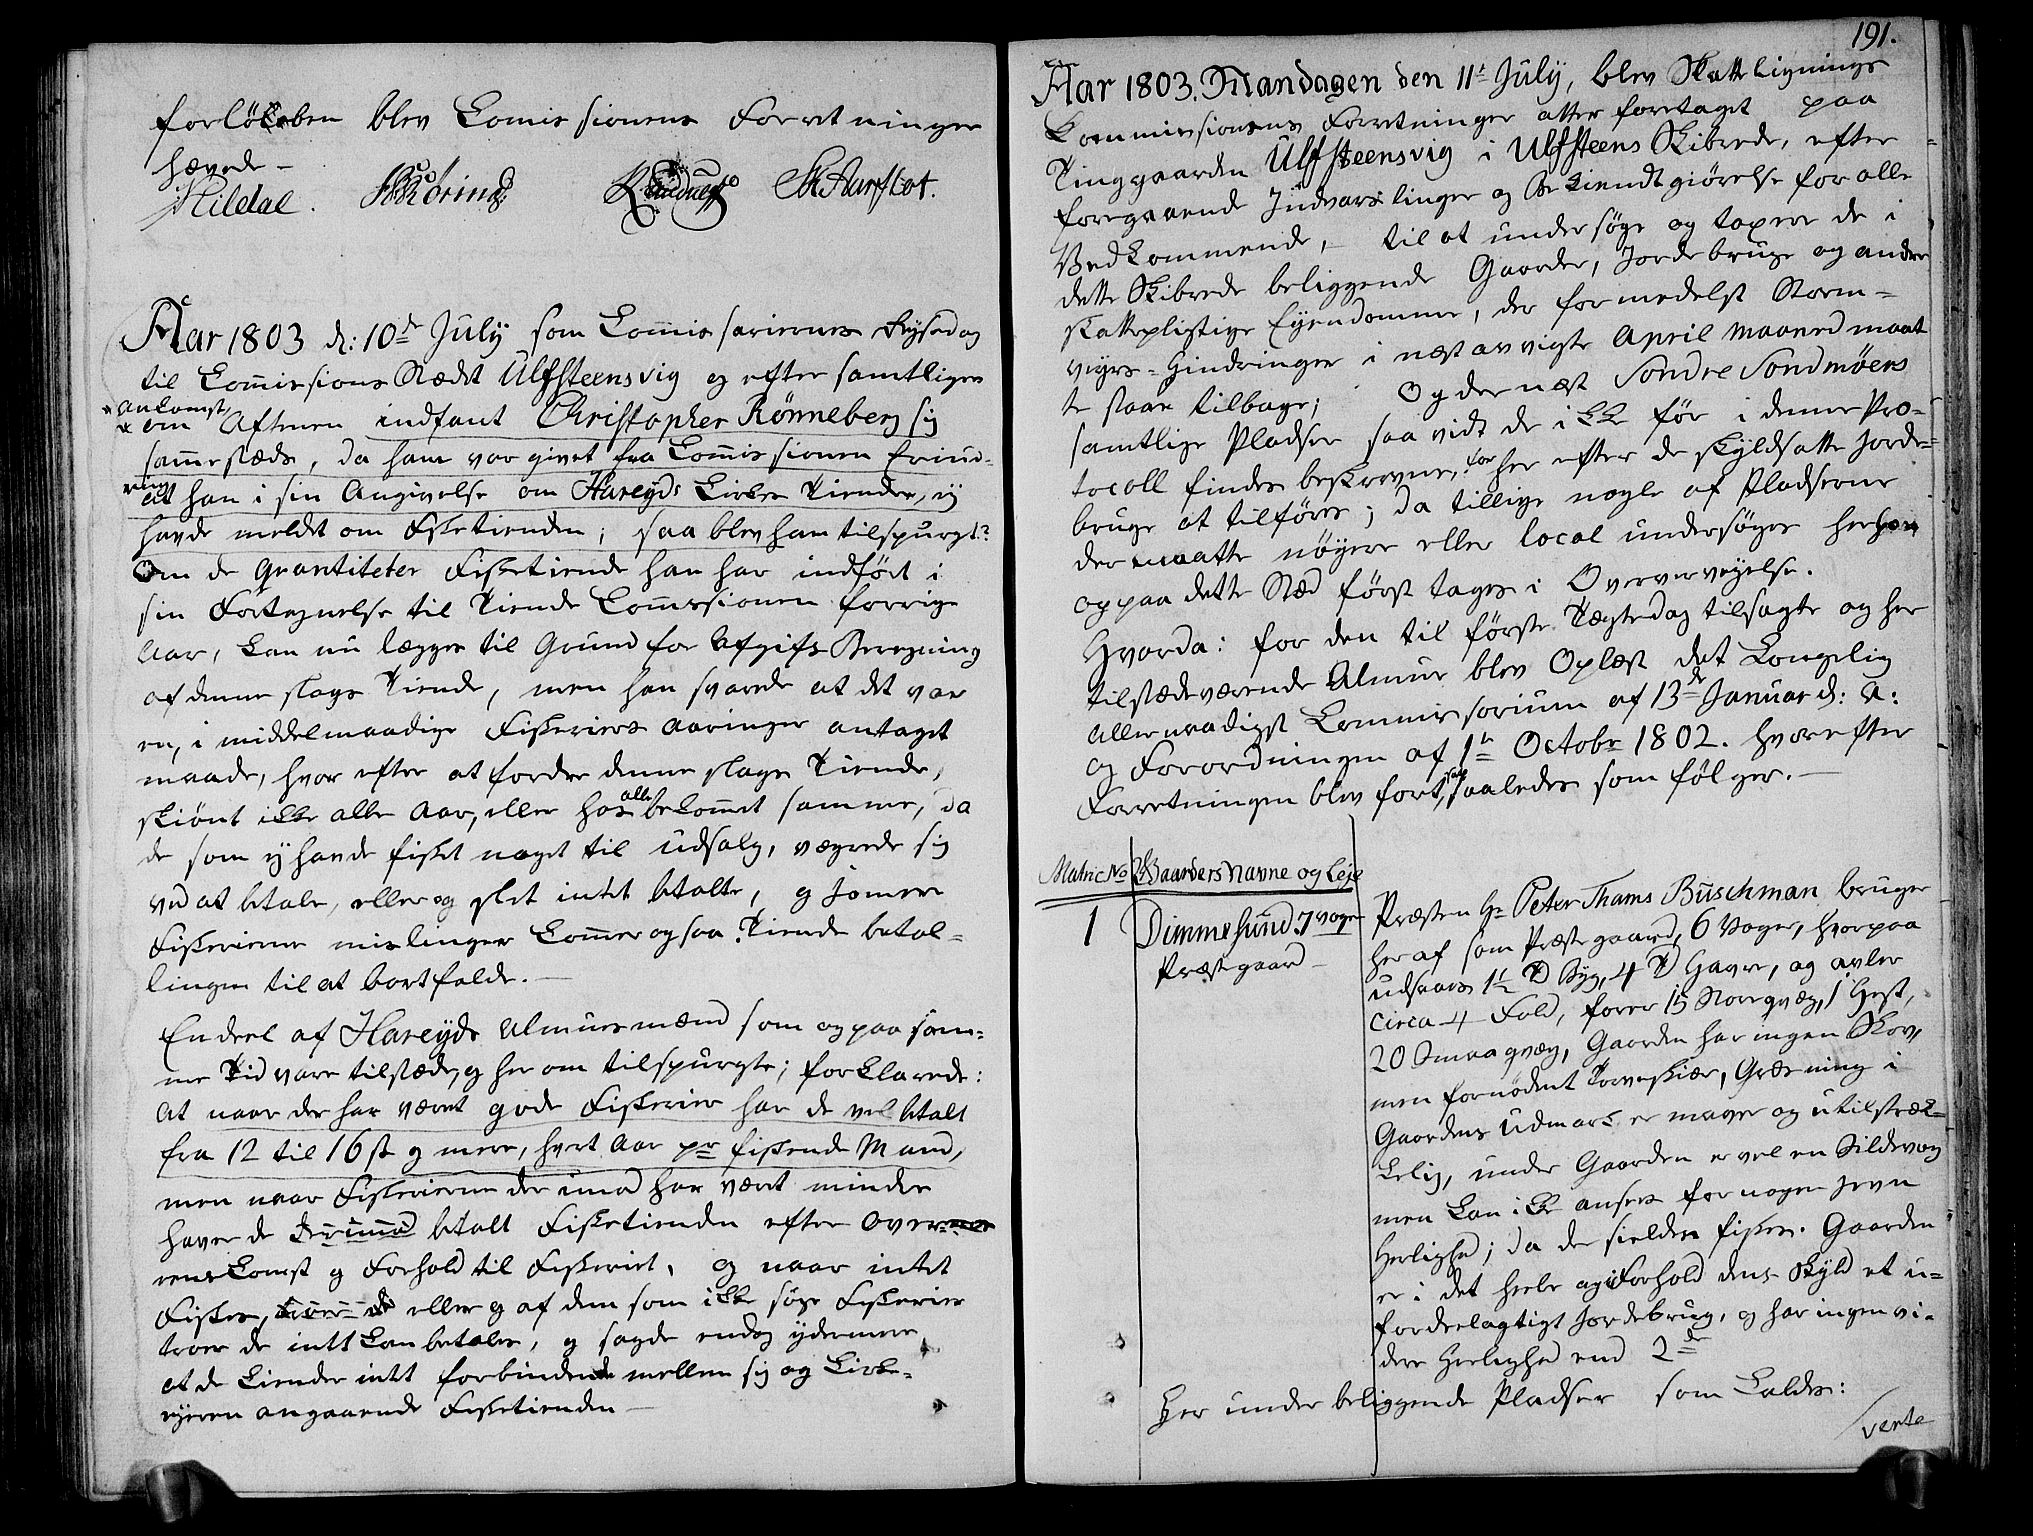 forløbben blev Comissionens Forretninger
hævede –
Hildal. Røring Aarflot.
Aar 1803 d: 10de July som Commissariernes Reysedag
til Commissions Stædet Ulfsteensvig og efter samtliges
Ankomst,
om Aftenen indfant Christopher Rønneberg sig
sammestæds, da ham var givet fra Commissionen Erind-
ring
at han i sin Angivelse om Hareyds Kirkes Tiender, ej
havde meldt om Fisketienden; saa blev ham tilspurgt?
Om de Qvantiteter Fisketiende han har indført i
sin Fortegnelse til Tiende Commissionen forrige
Aar, kan nu lægges til Grund for Afgifts Beregning
af denne slags Tiende, men han svarede at det var
en, i middelmaadige Fiskeriers Aaringer antaget
maade, hvor efter at fordre denne slags Tiende,
skiønt ikke alle Aar, eller hos alle bekommet samme, da
de som ej havde fisket noget til udsalg, vægrede sig
ved at betale, eller og slet intet betalte, og jo mere
Fiskerierne mislinger kommer ogsaa Tiende betal-
lingen til at bortfalde. –
En deel af Hareyds Almuesmænd som og paa sam-
me Tid vare tilstæde, og her om tilspurgte; forklarede:
At naar der har været gode Fiskerier har de vel betalt
fra 12 til 16 s og mere, hvert Aar pr fiskende Mand,
men naar Fiskerierne derimod har været mindre
haver de betalt Fisketienden efter Over-
enskomst og Forhold til Fiskeriet, og naar intet
Fiskes, eller og af dem som ikke søge Fiskerier
troer de intet kan betales, og sagde endog ydermere
at de kiender intet forbindende mellem sig og Kirke-
ejeren angaaende Fisketienden –
191.
Aar 1803. Mandagen den 11te July, blev Skatteligning
Commissionens Forretninger atter foretaget paa
Tinggaarden Ulfsteensvig i Ulfsteens Skibrede, efter
foregaaende Indvarslinger og Bekiendtgiørelse for alle
Vedkommende, – til at undersøge og taxere de i
dette Skibrede beliggende Gaarde, Jordebruge og andre
skattepligtige Eyendomme, der formedelst Storm-
vejrs-Hindringer i næstavvigte April maaned maat-
te staae tilbage; Og dernæst Søndre Søndmøers
samtlige Pladser saavidt de ikke før i denne Pro-
tocoll findes beskrevne, for her efter de skyldsatte Jorde-
bruge at tilføres; da tillige nogle af Pladserne
der maatte nøyere eller local undersøges
og paa dette Stæd først tages i Overvejelse.
Hvorda: for den til første Tægtedag tilsagte og her
tilstædeværende Almue blev Oplæst det Kongelig
allernaadigst Commissorium af 13de Januar d: A:
og Forordningen af 1te Octobr 1802. hvorefter
Forretningen blev fortsat, saaledes som følger. –
Matric No Gaarders Navne og Leje
1 Dimmesund 7 voger
Præstgaard –
Præsten Hr Peter Thams Buschman bruger
heraf som Præstegaard, 6 Voger, hvorpaa
udsaaes 1½ T Byg, 4 T Havre, og avler
circa 4 Fold, foder 15 Storeqvæg, 1 Hest,
20 Smaaqvæg, Gaarden har ingen Skov,
men fornødent Torveskiær, Græsning i
Gaardens Udmark er maver og utilstræk-
kelig, under Gaarden er vel en Sildevaag
men kan ikke ansees for nogen jevn
Herlighed; da der sielden fiskes. Gaarden
er i det heele og i Forhold dens Skyld et u-
fordeelagtigt Jordebrug, og har ingen vi-
dere Herlighed end 2de
Her under beliggende Pladser som kaldes:
verte